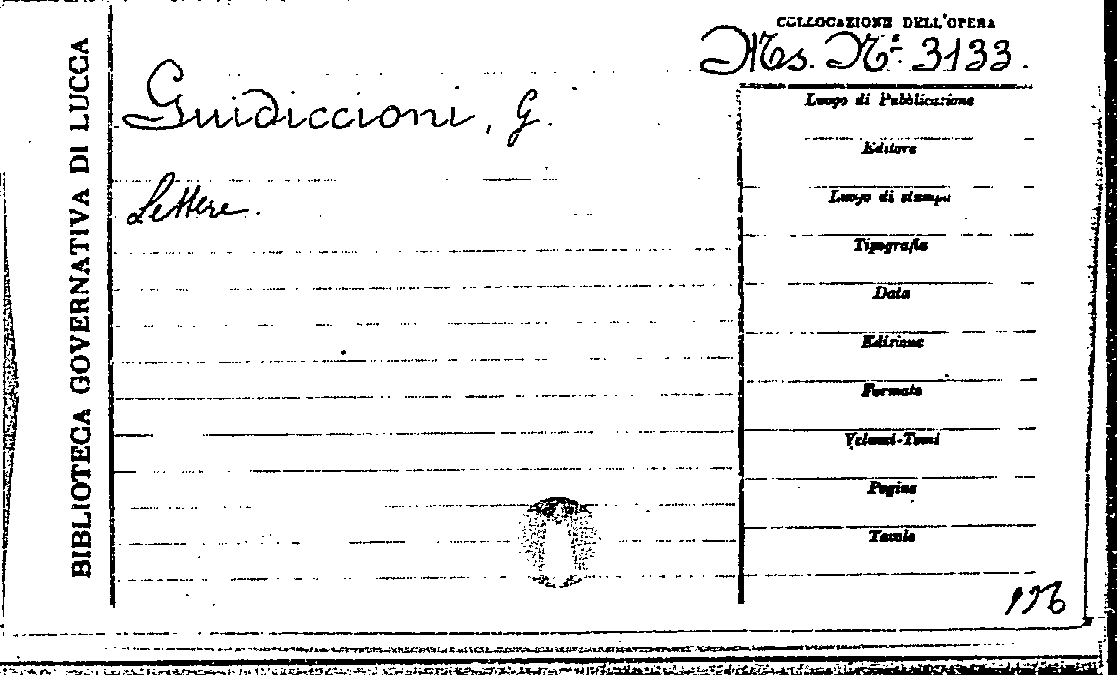 BIBLIOTECA GOVERNATIVA DI LUCCA
COLLOCAZIONE DELL'OPERA
Ms. N.º 3133.
Guidiccioni, G.
Lettere.
Luogo di Pubblicazione
Editore
Luogo di stampa
Tipografia
Data
Edizione
Formato
Volumi-Tomi
Pagine
Tavole